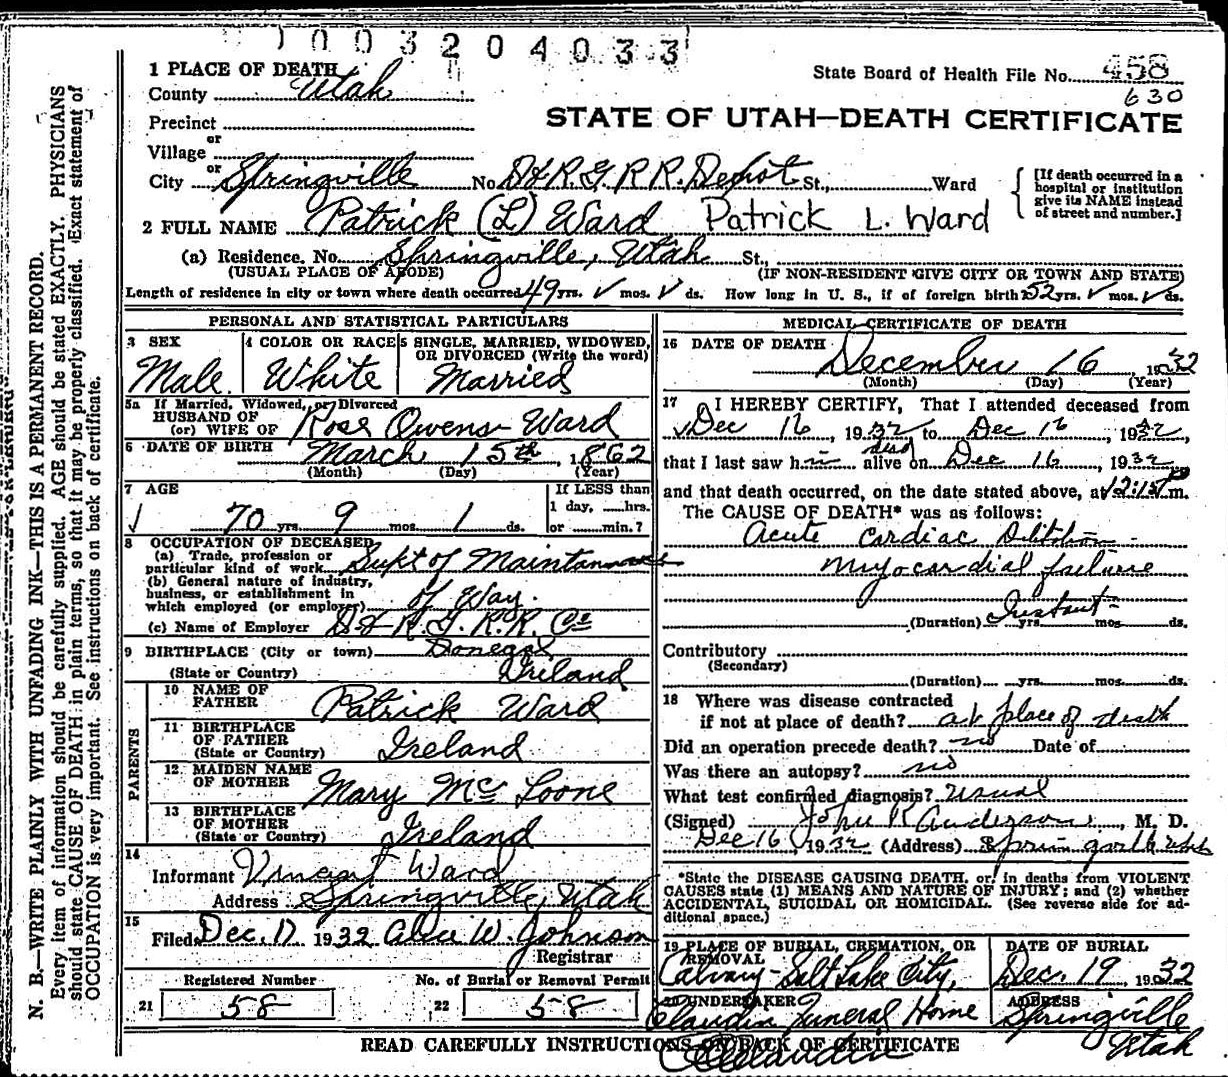 1003204033
1 PLACE OF DEATH
State Board of Health File No. 458
County Utah
630
STATE OF UTAH—DEATH CERTIFICATE
Precinct
or
Village
or
City Springville No. D & R. G. R R. Depot St., Ward
[If death occurred in a hospital or institution give its NAME instead of street and number.]
2 FULL NAME Patrick (L) Ward Patrick L. Ward
(a) Residence. No. Springville, Utah St.,
(USUAL PLACE OF ABODE) (IF NON-RESIDENT GIVE CITY OR TOWN AND STATE)
Length of residence in city or town where death occurred 49 yrs. ✓ mos. ✓ ds. How long in U. S., if of foreign birth 52 yrs. ✓ mos. ✓ ds.
PERSONAL AND STATISTICAL PARTICULARS
3 SEX 4 COLOR OR RACE 5 SINGLE, MARRIED, WIDOWED, OR DIVORCED (Write the word)
Male White Married
5a If Married, Widowed, or Divorced
HUSBAND OF
(or) WIFE OF Rose Owens Ward
6 DATE OF BIRTH March 15th, 1862
(Month) (Day) (Year)
7 AGE
70 yrs. 9 mos. 1 ds.
If LESS than
1 day, hrs.
or min.?
8 OCCUPATION OF DECEASED
(a) Trade, profession or
particular kind of work Supt of
(b) General nature of industry,
business, or establishment in
which employed (or employer) of Way.
(c) Name of Employer D & R. G. R. R. Co
9 BIRTHPLACE (City or town) Donegal
(State or Country) Ireland
PARENTS
10 NAME OF
FATHER Patrick Ward
11 BIRTHPLACE
OF FATHER
(State or Country) Ireland
12 MAIDEN NAME
OF MOTHER Mary Mc Loone
13 BIRTHPLACE
OF MOTHER
(State or Country) Ireland
14
Informant Vincent Ward
Address Springville, Utah
15
Filed Dec. 17 1932 Alice W. Johnson
Registrar
Registered Number No. of Burial or Removal Permit
21 58 22 58
MEDICAL CERTIFICATE OF DEATH
16 DATE OF DEATH
December 16, 1932
(Month) (Day) (Year)
17 I HEREBY CERTIFY, That I attended deceased from
✓Dec 16, 1932 to Dec 16, 1932,
dead
that I last saw him alive on Dec 16, 1932
and that death occurred, on the date stated above, at 12:15 P m.
The CAUSE OF DEATH* was as follows:
Acute Cardiac
Myocardial failure
Instant
(Duration) yrs. mos. ds.
Contributory
(Secondary)
(Duration) yrs. mos. ds.
18 Where was disease contracted
if not at place of death? at place of death
Did an operation precede death? no Date of
Was there an autopsy? no
What test confirmed diagnosis? usual
(Signed) John R Anderson, M. D.
Dec 16, 1932 (Address)
*State the DISEASE CAUSING DEATH, or, in deaths from VIOLENT
CAUSES state (1) MEANS AND NATURE OF INJURY; and (2) whether
ACCIDENTAL, SUICIDAL OR HOMICIDAL. (See reverse side for ad-
ditional space.)
19 PLACE OF BURIAL, CREMATION, OR
REMOVAL
Calvary - Salt Lake City,
DATE OF BURIAL
Dec. 19, 1932
20 UNDERTAKER
Claudin Funeral Home
ADDRESS
Springville
Utah
READ CAREFULLY INSTRUCTIONS ON BACK OF CERTIFICATE
N. B.—WRITE PLAINLY WITH UNFADING INK—THIS IS A PERMANENT RECORD.
Every item of information should be carefully supplied. AGE should be stated EXACTLY. PHYSICIANS
should state CAUSE OF DEATH in plain terms, so that it may be properly classified. Exact statement of
OCCUPATION is very important. See instructions on back of certificate.